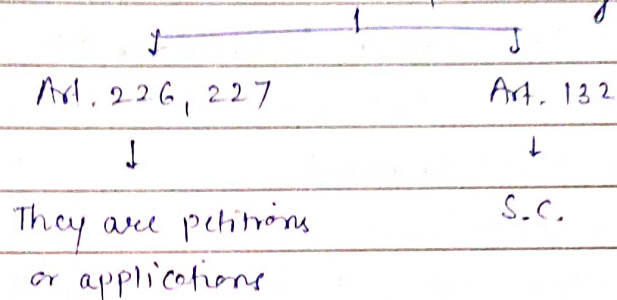 Art. 226, 227 Art. 132
They are petitions S.C.
or applications